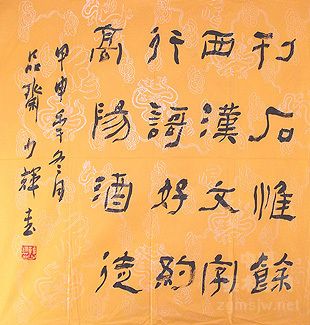 刊石惟餘
西漢文字
行謌好約
高陽酒徒
甲申年冬月
品齋少輝書
zgmsjw.net